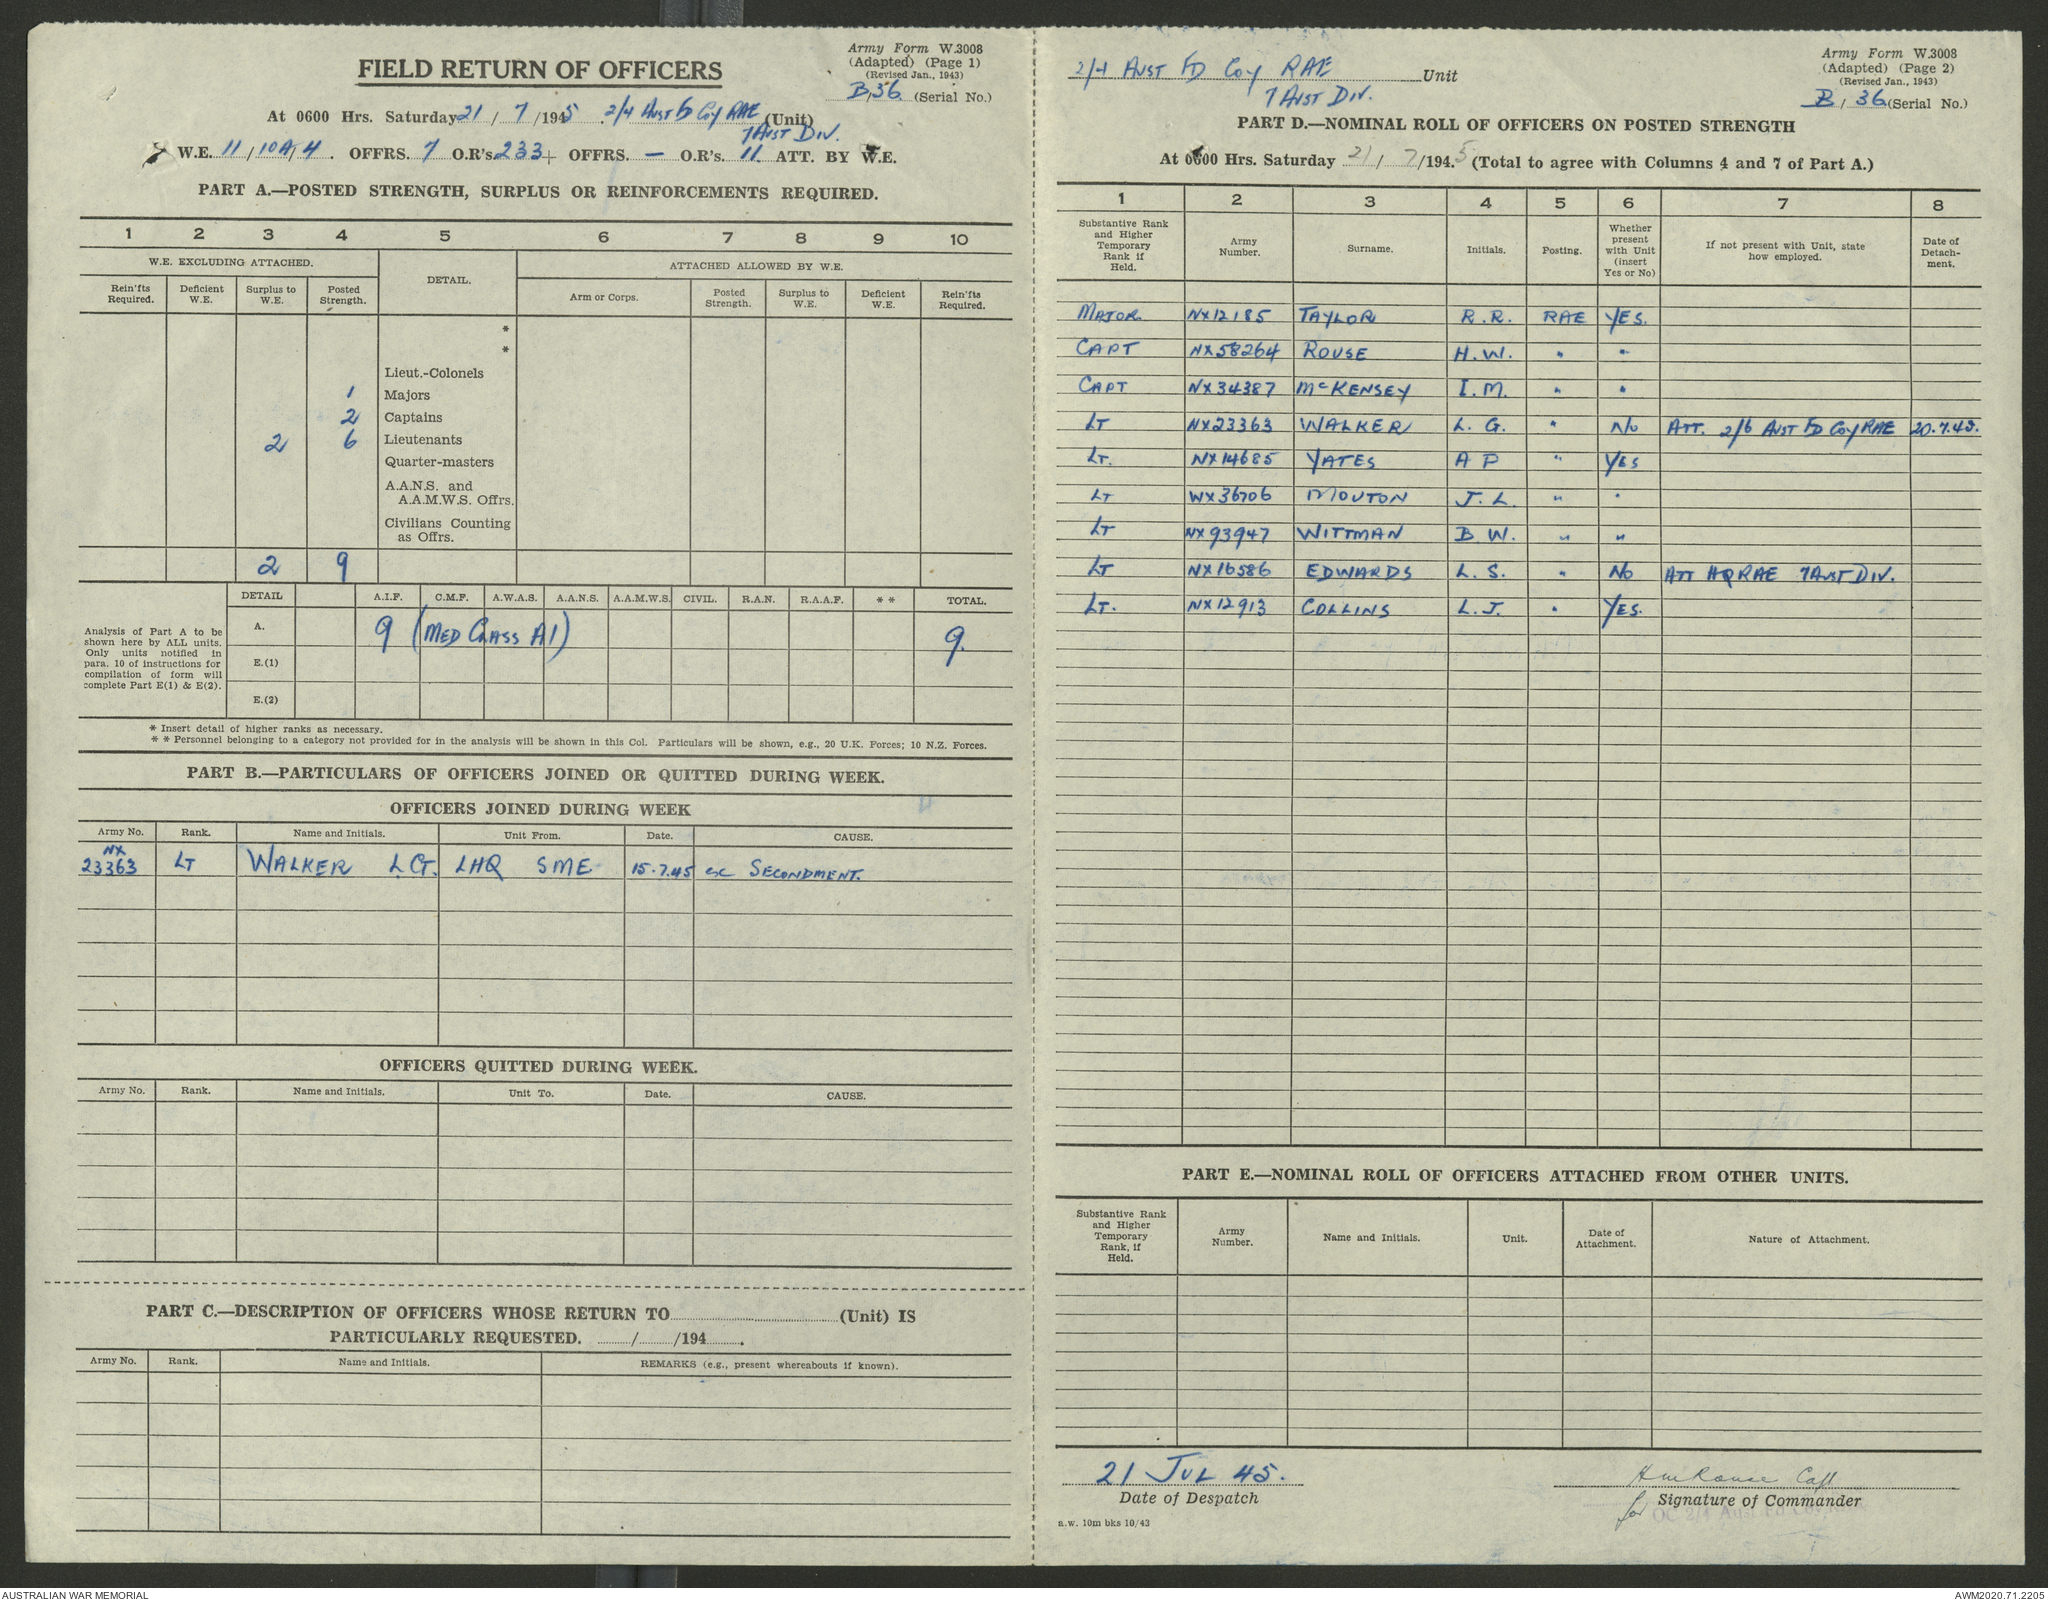 Army Form W.3008
(Adapted) (Page 1)
(Revised Jan., 1943)
B/36 (Serial No.)
FIELD RETURN OF OFFICERS
At 0600 Hrs. Saturday 21 / 7 /1945 . 2/4 Aust Fd Coy RAE (Unit)
7 Aust Div.
W.E. 11/10A/4 . OFFRS. 7 O.R's. 233 + OFFRS. — O.R's. 11. ATT. BY W.E.
PART A.—POSTED STRENGTH, SURPLUS OR REINFORCEMENTS REQUIRED.
1 2 3 4 5 6 7 8 9 10
W.E. EXCLUDING ATTACHED. DETAIL. ATTACHED ALLOWED BY W.E.
Rein'fts Required. Deficient W.E. Surplus to W.E. Posted Strength. Arm or Corps. Posted Strength. Surplus to W.E. Deficient W.E. Rein'fts Required.
*
*
Lieut.-Colonels
1 Majors
2 Captains
2 6 Lieutenants
Quarter-masters
A.A.N.S. and
A.A.M.W.S. Offrs.
Civilians Counting
as Offrs.
2 9
Analysis of Part A to be
shown here by ALL units.
Only units notified in
para. 10 of instructions for
compilation of form will
complete Part E(1) & E(2).
DETAIL A.I.F. C.M.F. A.W.A.S. A.A.N.S. A.A.M.W.S. CIVIL. R.A.N. R.A.A.F. * * TOTAL.
A. 9 (MED CLASS A1) 9.
E.(1)
E.(2)
* Insert detail of higher ranks as necessary.
* * Personnel belonging to a category not provided for in the analysis will be shown in this Col. Particulars will be shown, e.g., 20 U.K. Forces; 10 N.Z. Forces.
PART B.—PARTICULARS OF OFFICERS JOINED OR QUITTED DURING WEEK.
OFFICERS JOINED DURING WEEK
Army No. Rank. Name and Initials. Unit From. Date. CAUSE.
NX
23363 LT WALKER L.G. LHQ SME 15.7.45 SECONDMENT.
OFFICERS QUITTED DURING WEEK.
Army No. Rank. Name and Initials. Unit To. Date. CAUSE.
PART C.—DESCRIPTION OF OFFICERS WHOSE RETURN TO (Unit) IS
PARTICULARLY REQUESTED. / /194 .
Army No. Rank. Name and Initials. REMARKS (e.g., present whereabouts if known).
2/4 AUST FD COY RAE Unit
7 AUST DIV.
Army Form W.3008
(Adapted) (Page 2)
(Revised Jan., 1943)
B / 36 (Serial No.)
PART D.—NOMINAL ROLL OF OFFICERS ON POSTED STRENGTH
At 0600 Hrs. Saturday 21 / 7 /194.5 (Total to agree with Columns 4 and 7 of Part A.)
1 2 3 4 5 6 7 8
Substantive Rank and Higher Temporary Rank if Held. Army Number. Surname. Initials. Posting. Whether present with Unit (insert Yes or No) If not present with Unit, state how employed. Date of Detach-ment.
MAJOR. NX12185 TAYLOR R.R. RAE YES.
CAPT NX58264 ROUSE H.W. " "
CAPT NX34387 McKENSEY I.M. " "
LT NX23363 WALKER L.G. " No ATT. 2/6 AUST FD COY RAE 20.7.45.
LT. NX14685 YATES A P " YES
LT WX36706 MOUTON J.L. " "
LT NX93947 WITTMAN B W. " "
LT NX16586 EDWARDS L.S. " No ATT HQ RAE 7 AUST DIV.
LT. NX12913 COLLINS L.J. " YES.
PART E.—NOMINAL ROLL OF OFFICERS ATTACHED FROM OTHER UNITS.
Substantive Rank and Higher Temporary Rank, if Held. Army Number. Name and Initials. Unit. Date of Attachment. Nature of Attachment.
21 JUL 45.
Date of Despatch
HW Rouse Capt
Signature of Commander
for OC 2/4 Aust Fd Coy
a.w. 10m bks 10/43
AUSTRALIAN WAR MEMORIAL
AWM2020.71.2205